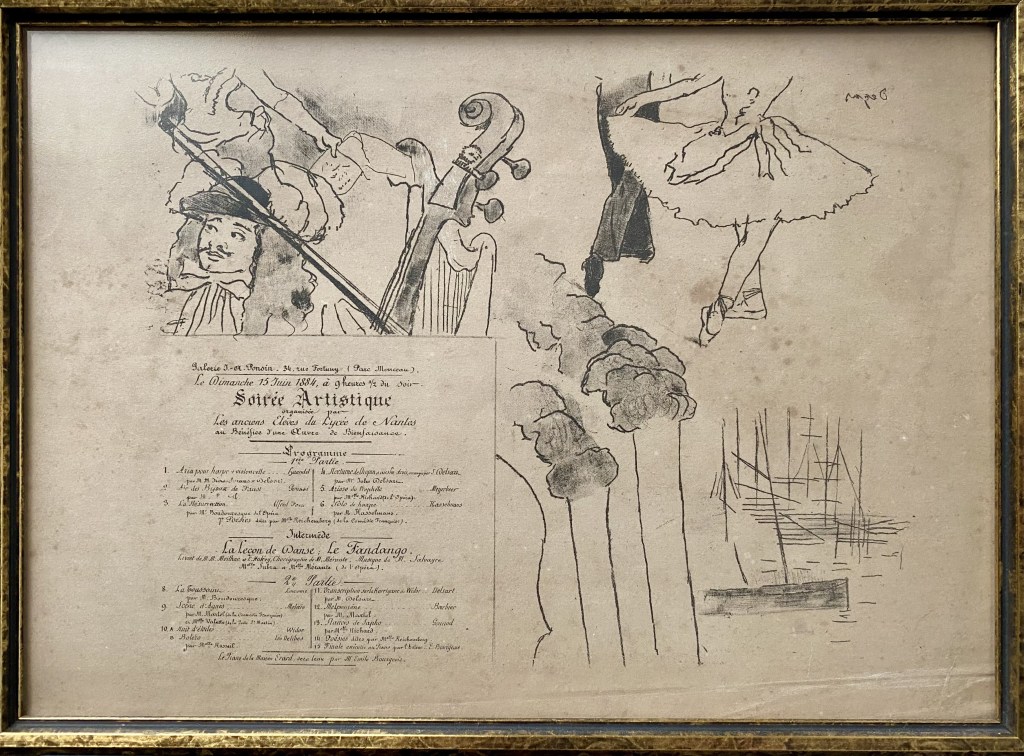 Degas
Galerie Ponsin. 34, rue Fortuny (Parc Monceau).
Le Dimanche 15 Juin 1884, à 9 heures ½ du soir
Soirée Artistique
organisée par
Les anciens Elèves du Lycée de Nantes
au Bénéfice d'une Œuvre de Bienfaisance.
Programme
1ère Partie
1. Aria pour harpe & violoncelle Haendel
par M.M.
2. Air des Bijoux de Faust Gounod
par
3. La Résurrection
par Mr Boudouresque de l'Opéra
4. Nocturne de Chopin
par Mr Jules Delsart
5. Arioso du Prophète Meyerbeer
par Mlle Richard (de l'Opéra).
6. Solo de harpe Hasselmans
par M. Hasselmans.
7 Poésies dites par Mlle Reichemberg (de la Comédie Française).
Intermède
La Leçon de Danse; Le Fandango.
Livret de M.M. Meilhac & Halévy, Chorégraphie de M. Mérante, Musique de M. Salvayre
Mlle Subra & Mr Mérante (de l'Opéra).
2me Partie
8. La
par M. Boudouresque.
9. Scène d'Agnès Molière
par M. Martel (de la Comédie Française)
& Mlle
10. A Nuit d'étoiles Widor
B Boléro Léo Delibes
par Mlle
11. Transcription Delsart
par M. Delsart.
12. Melpomène Barbier
par M. Martel
13. Stances de Sapho Gounod
par Mlle Richard
14. Poésies dites par Mlle Reichemberg
15 Finale
Le Piano de la Maison Erard, sera tenu par M. Emile Bourgeois.